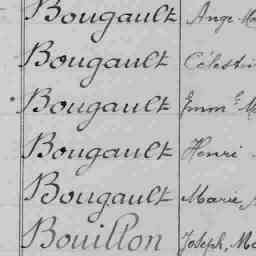 Bougault Ange-Ma
Bougault Célesti
Bougault Emm.e M
Bougault Henri
Bougault Marie
Bouillon Joseph, Ma